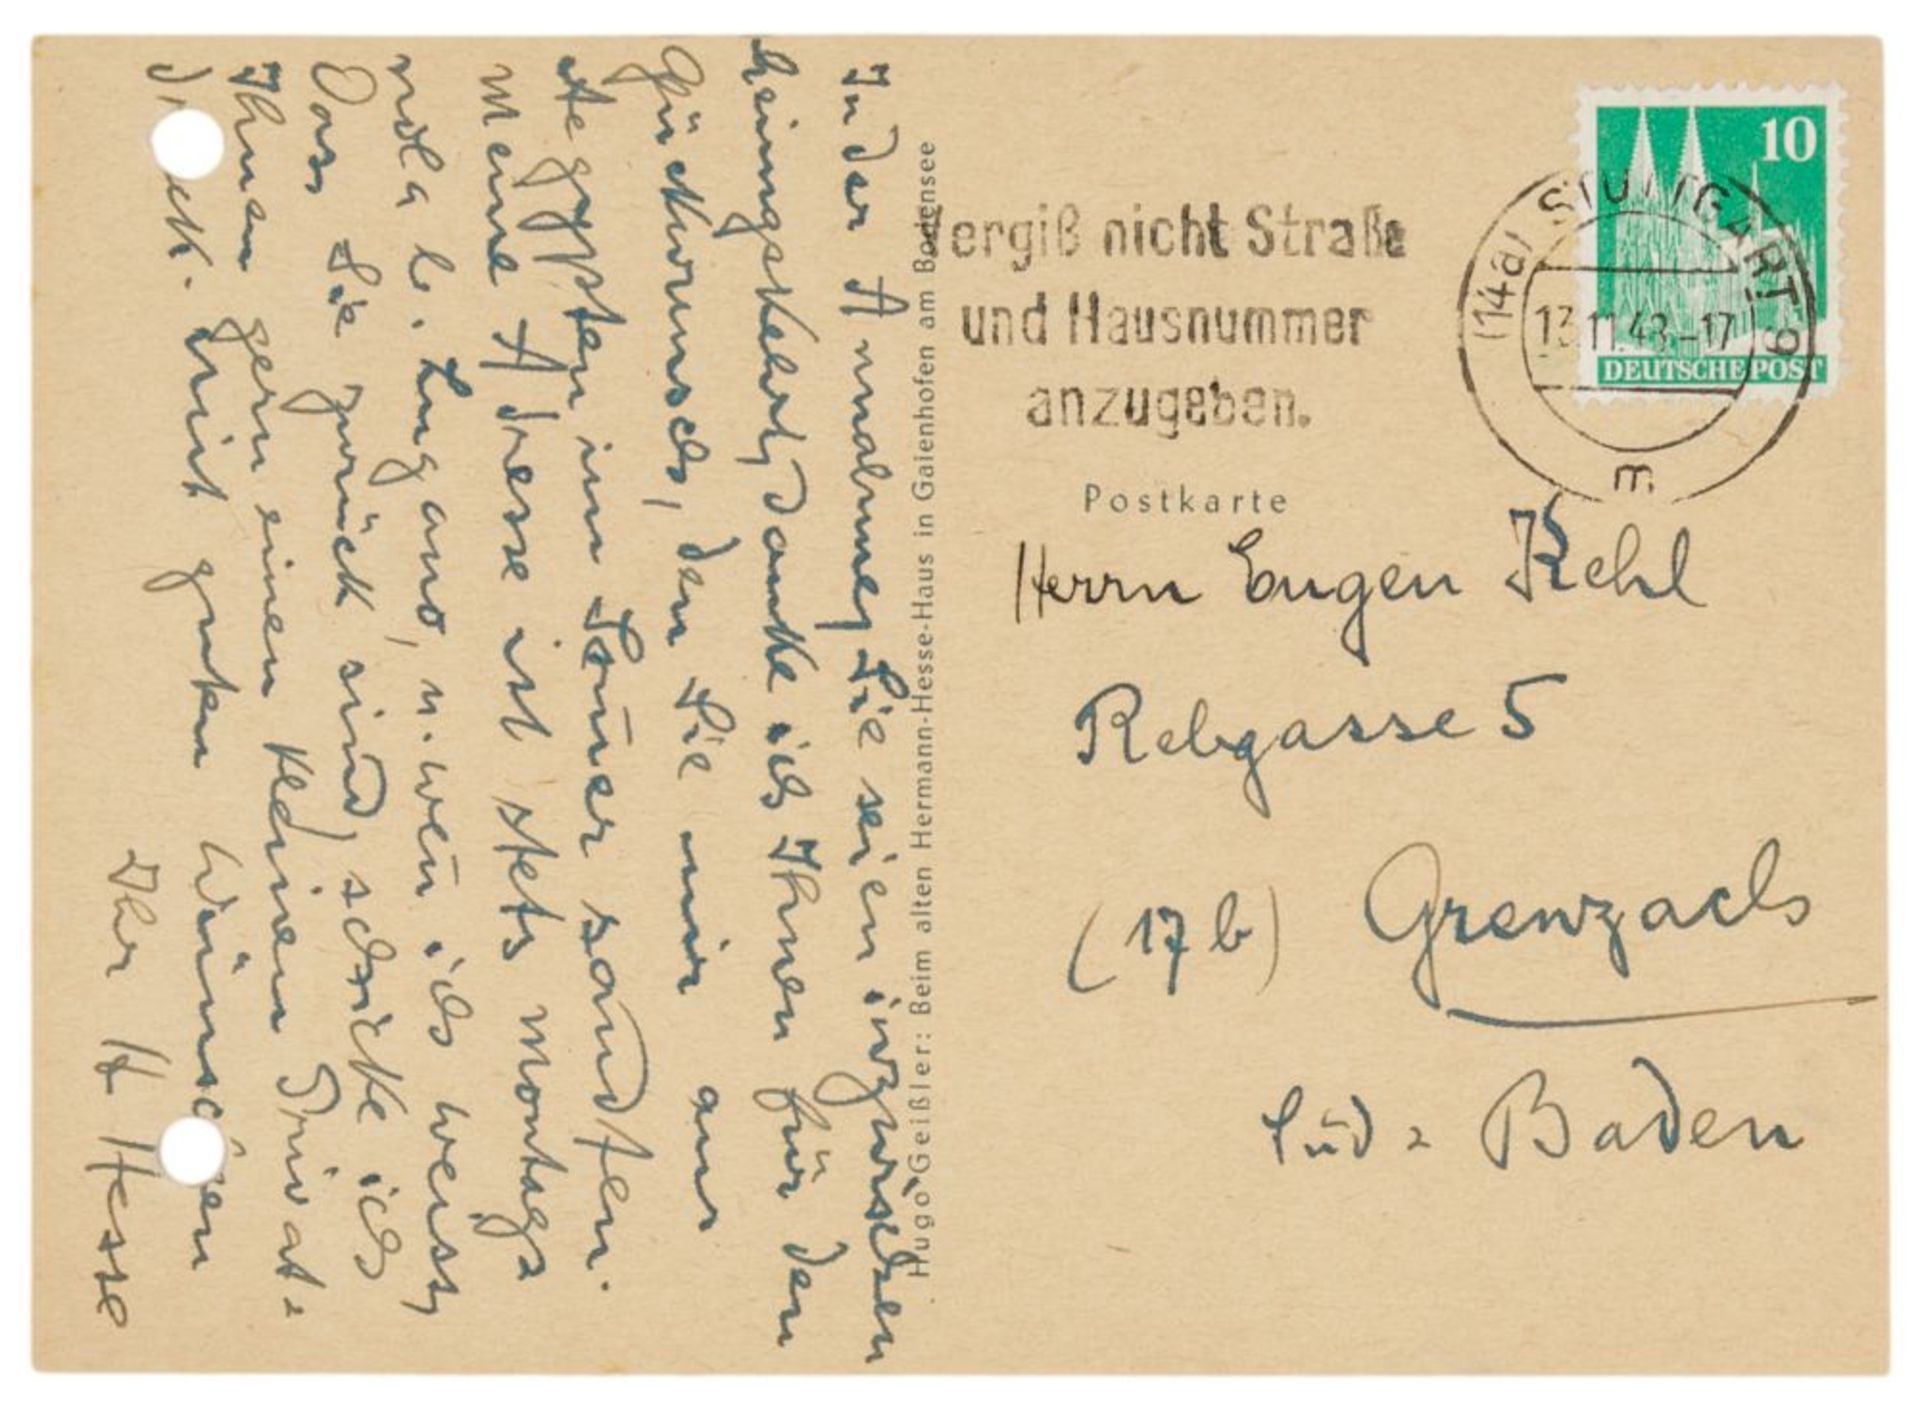 In der Annahme, Sie seien inzwischen
heimgekehrt, danke ich Ihnen für den
Glückwunsch, den Sie mir aus
Aegypten im Sommer sandten.
Meine Adresse ist stets Montags
nola b. Lugano, u. weñ ich weiss,
Dass Sie zurück sind, schicke ich
Ihnen gern einen kleinen Privat-
druck. Mit guten Wünschen
Ihr H Hesse
Hugo Geißler: Beim alten Hermann-Hesse-Haus in Gaienhofen am Bodensee
Vergiß nicht Straße
und Hausnummer
anzugeben.
10
DEUTSCHE POST
(14a) STUTTGART 9
13.11.48.-17
m
Postkarte
Herrn Eugen Kehl
Rebgasse 5
(17b) Grenzach
Süd-Baden